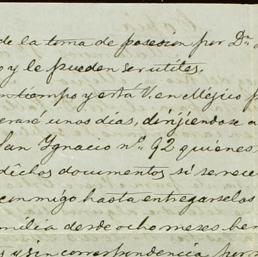 de la toma de posesion por Dn
o y le pueden ser utiles.
tiempo y está V. en Méjico p
erase unos dias, dirijiendose a
San Ygnacio nº 92 quienes
dichos documentos si se nece
conmigo hasta entregarselos
milia desde ocho meses. he
y sin correspondencia